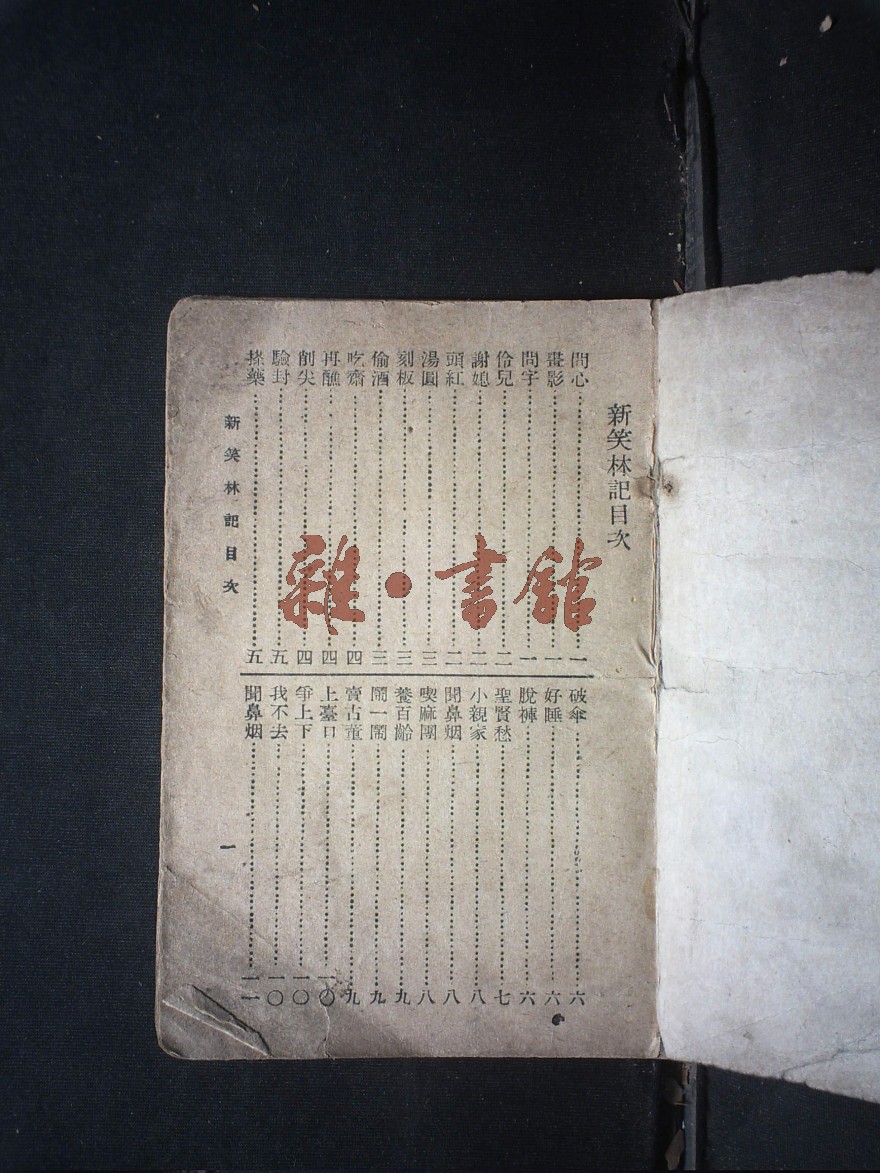 新笑林記目次
問心……一
畫影……一
問字……一
伶兒……二
謝媳……二
頭紅……二
湯圓……三
刻板……三
偷酒……三
吃齋……四
再醮……四
削尖……四
驗封……五
搽藥……五
破傘……六
好睡……六
脫褲……六
聖賢愁……七
小親家……八
聞鼻烟……八
喫麻團……八
養百齡……九
鬧一鬧……九
賣古董……九
上臺口……一〇
爭上下……一〇
我不去……一〇
聞鼻烟……一一
新笑林記目次
一
雜·書館